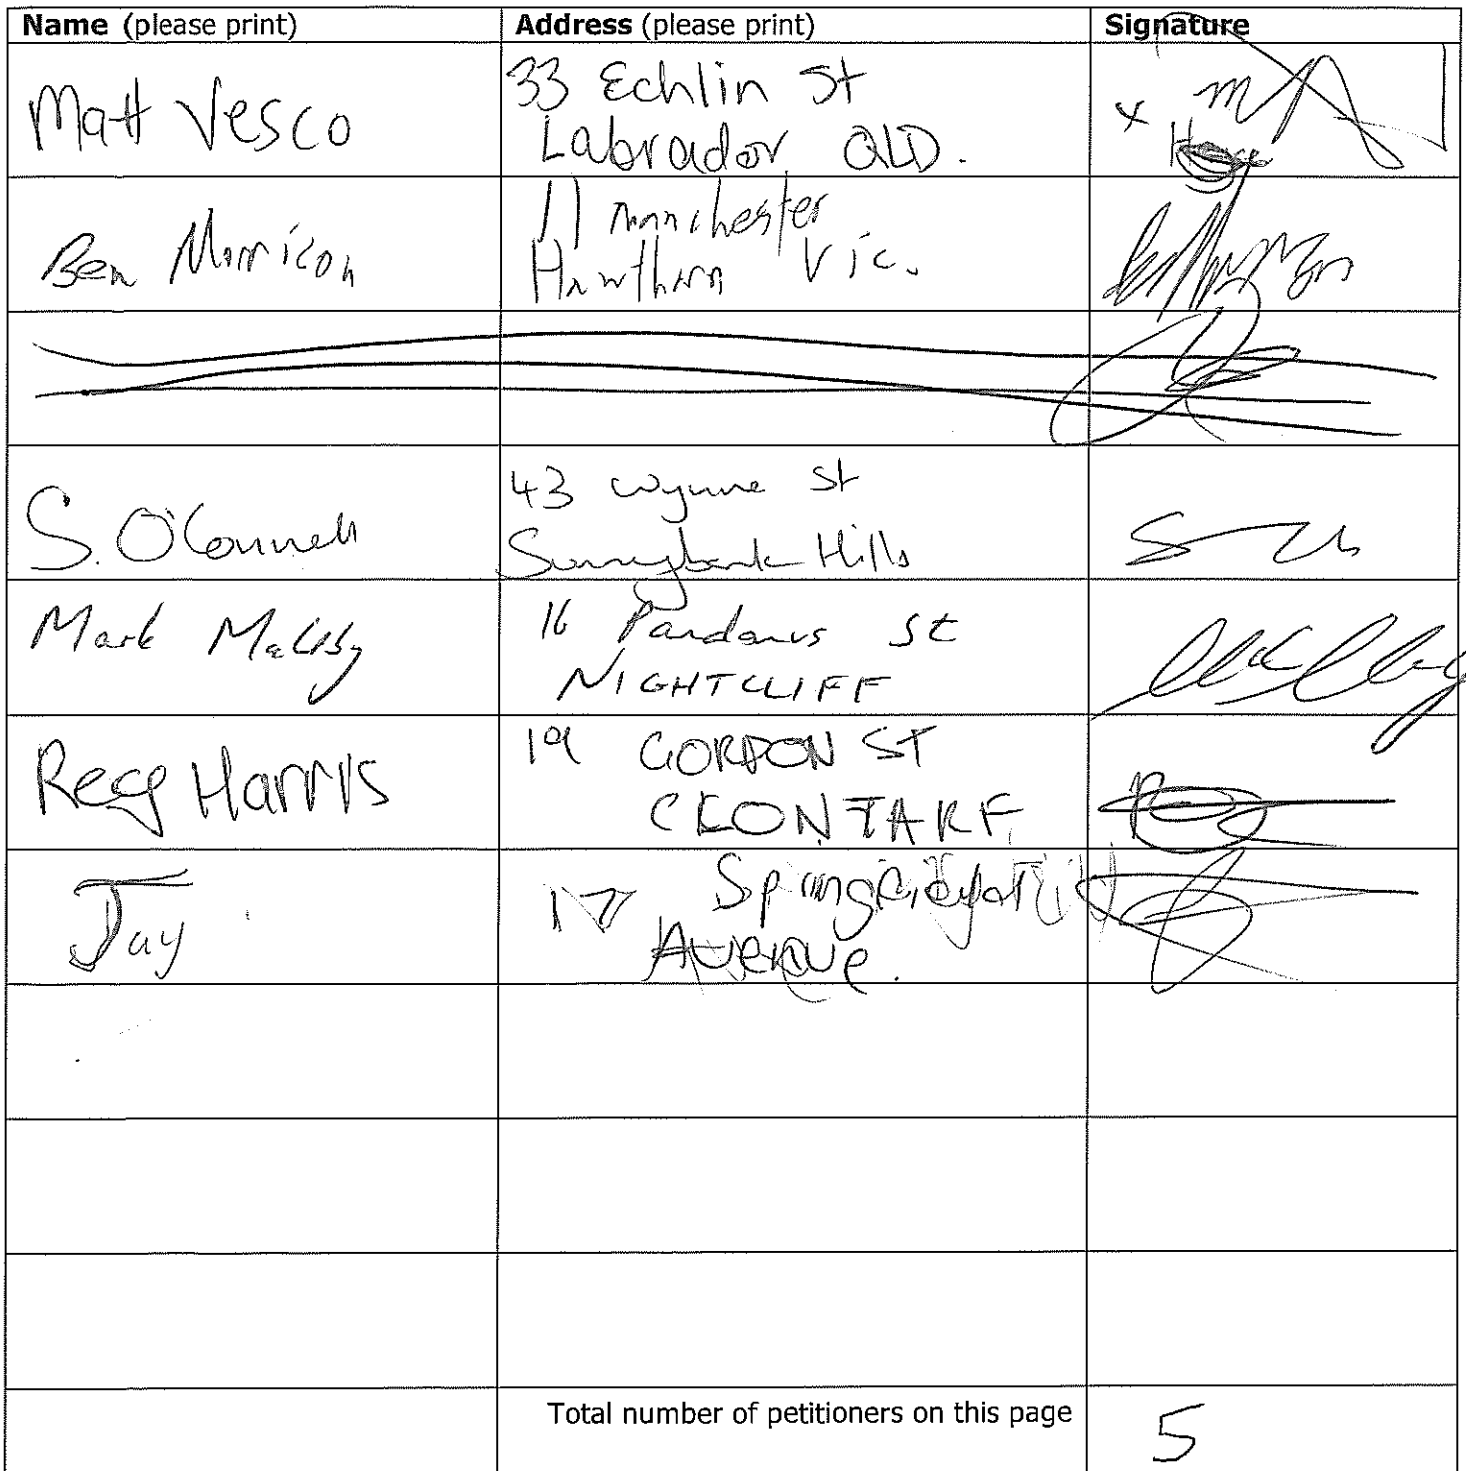 Name (please print) Address (please print) Signature
Matt Vesco
33 Echlin St
Labrador QLD.
x
Ben Morrison
11 Manchester
Hawthorn Vic.
S. O'Connell
43 Wynne St
Sunnybank Hills
Mark
16 Pandanus St
NIGHTCLIFF
Reg Harris
19 GORDON ST
CLONTARF
Jay
17
Avenue.
Total number of petitioners on this page 5